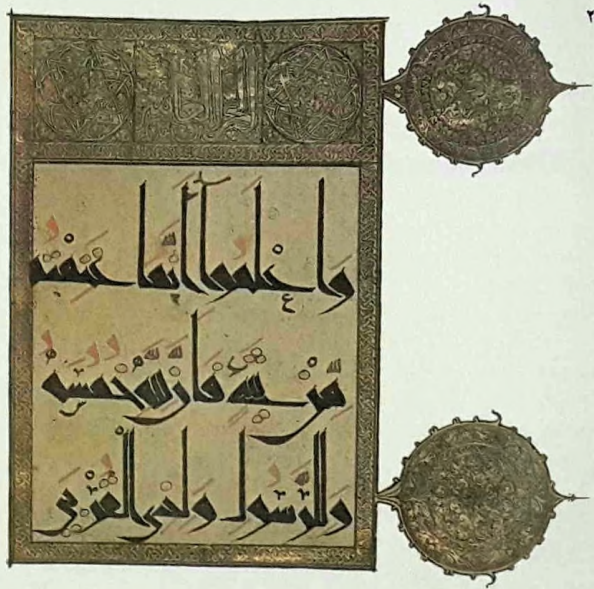 وَاعْلَمُوا أَنَّمَا غَنِمْتُم
مِّن شَيْءٍ فَأَنَّ لِلَّهِ خُمُسَهُ
وَلِلرَّسُولِ وَلِذِي الْقُرْبَىٰ